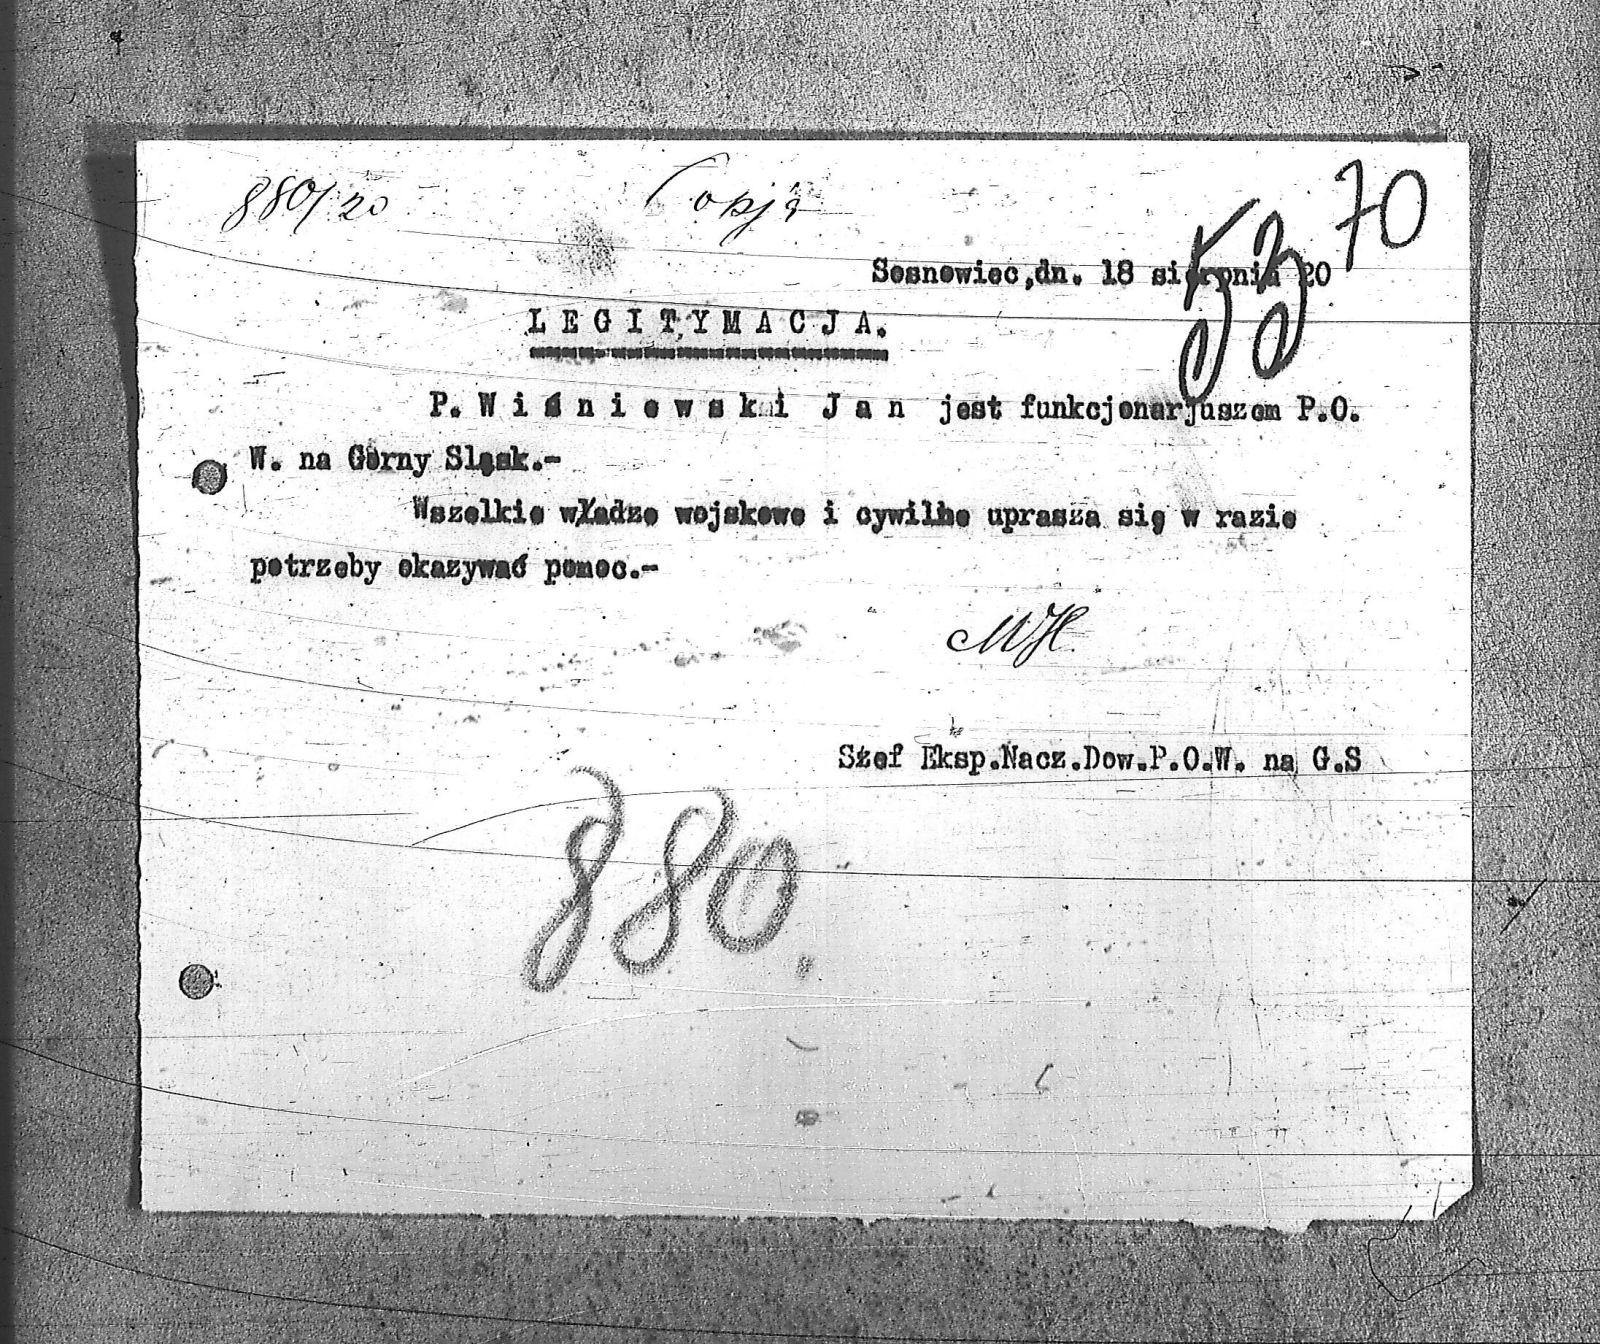 880/20
Copja
70
53
Sosnowiec,dn. 18 sierpnia 20
LEGITYMACJA.
P. Wiśniewski Jan jest funkcjonarjuszem P.O.
W. na Górny Sląsk.-
Wszelkie władze wojskowe i cywilne uprasza się w razie
potrzeby okazywać pomoc.-
Szef Eksp.Nacz.Dow.P.O.W. na G.S
880.